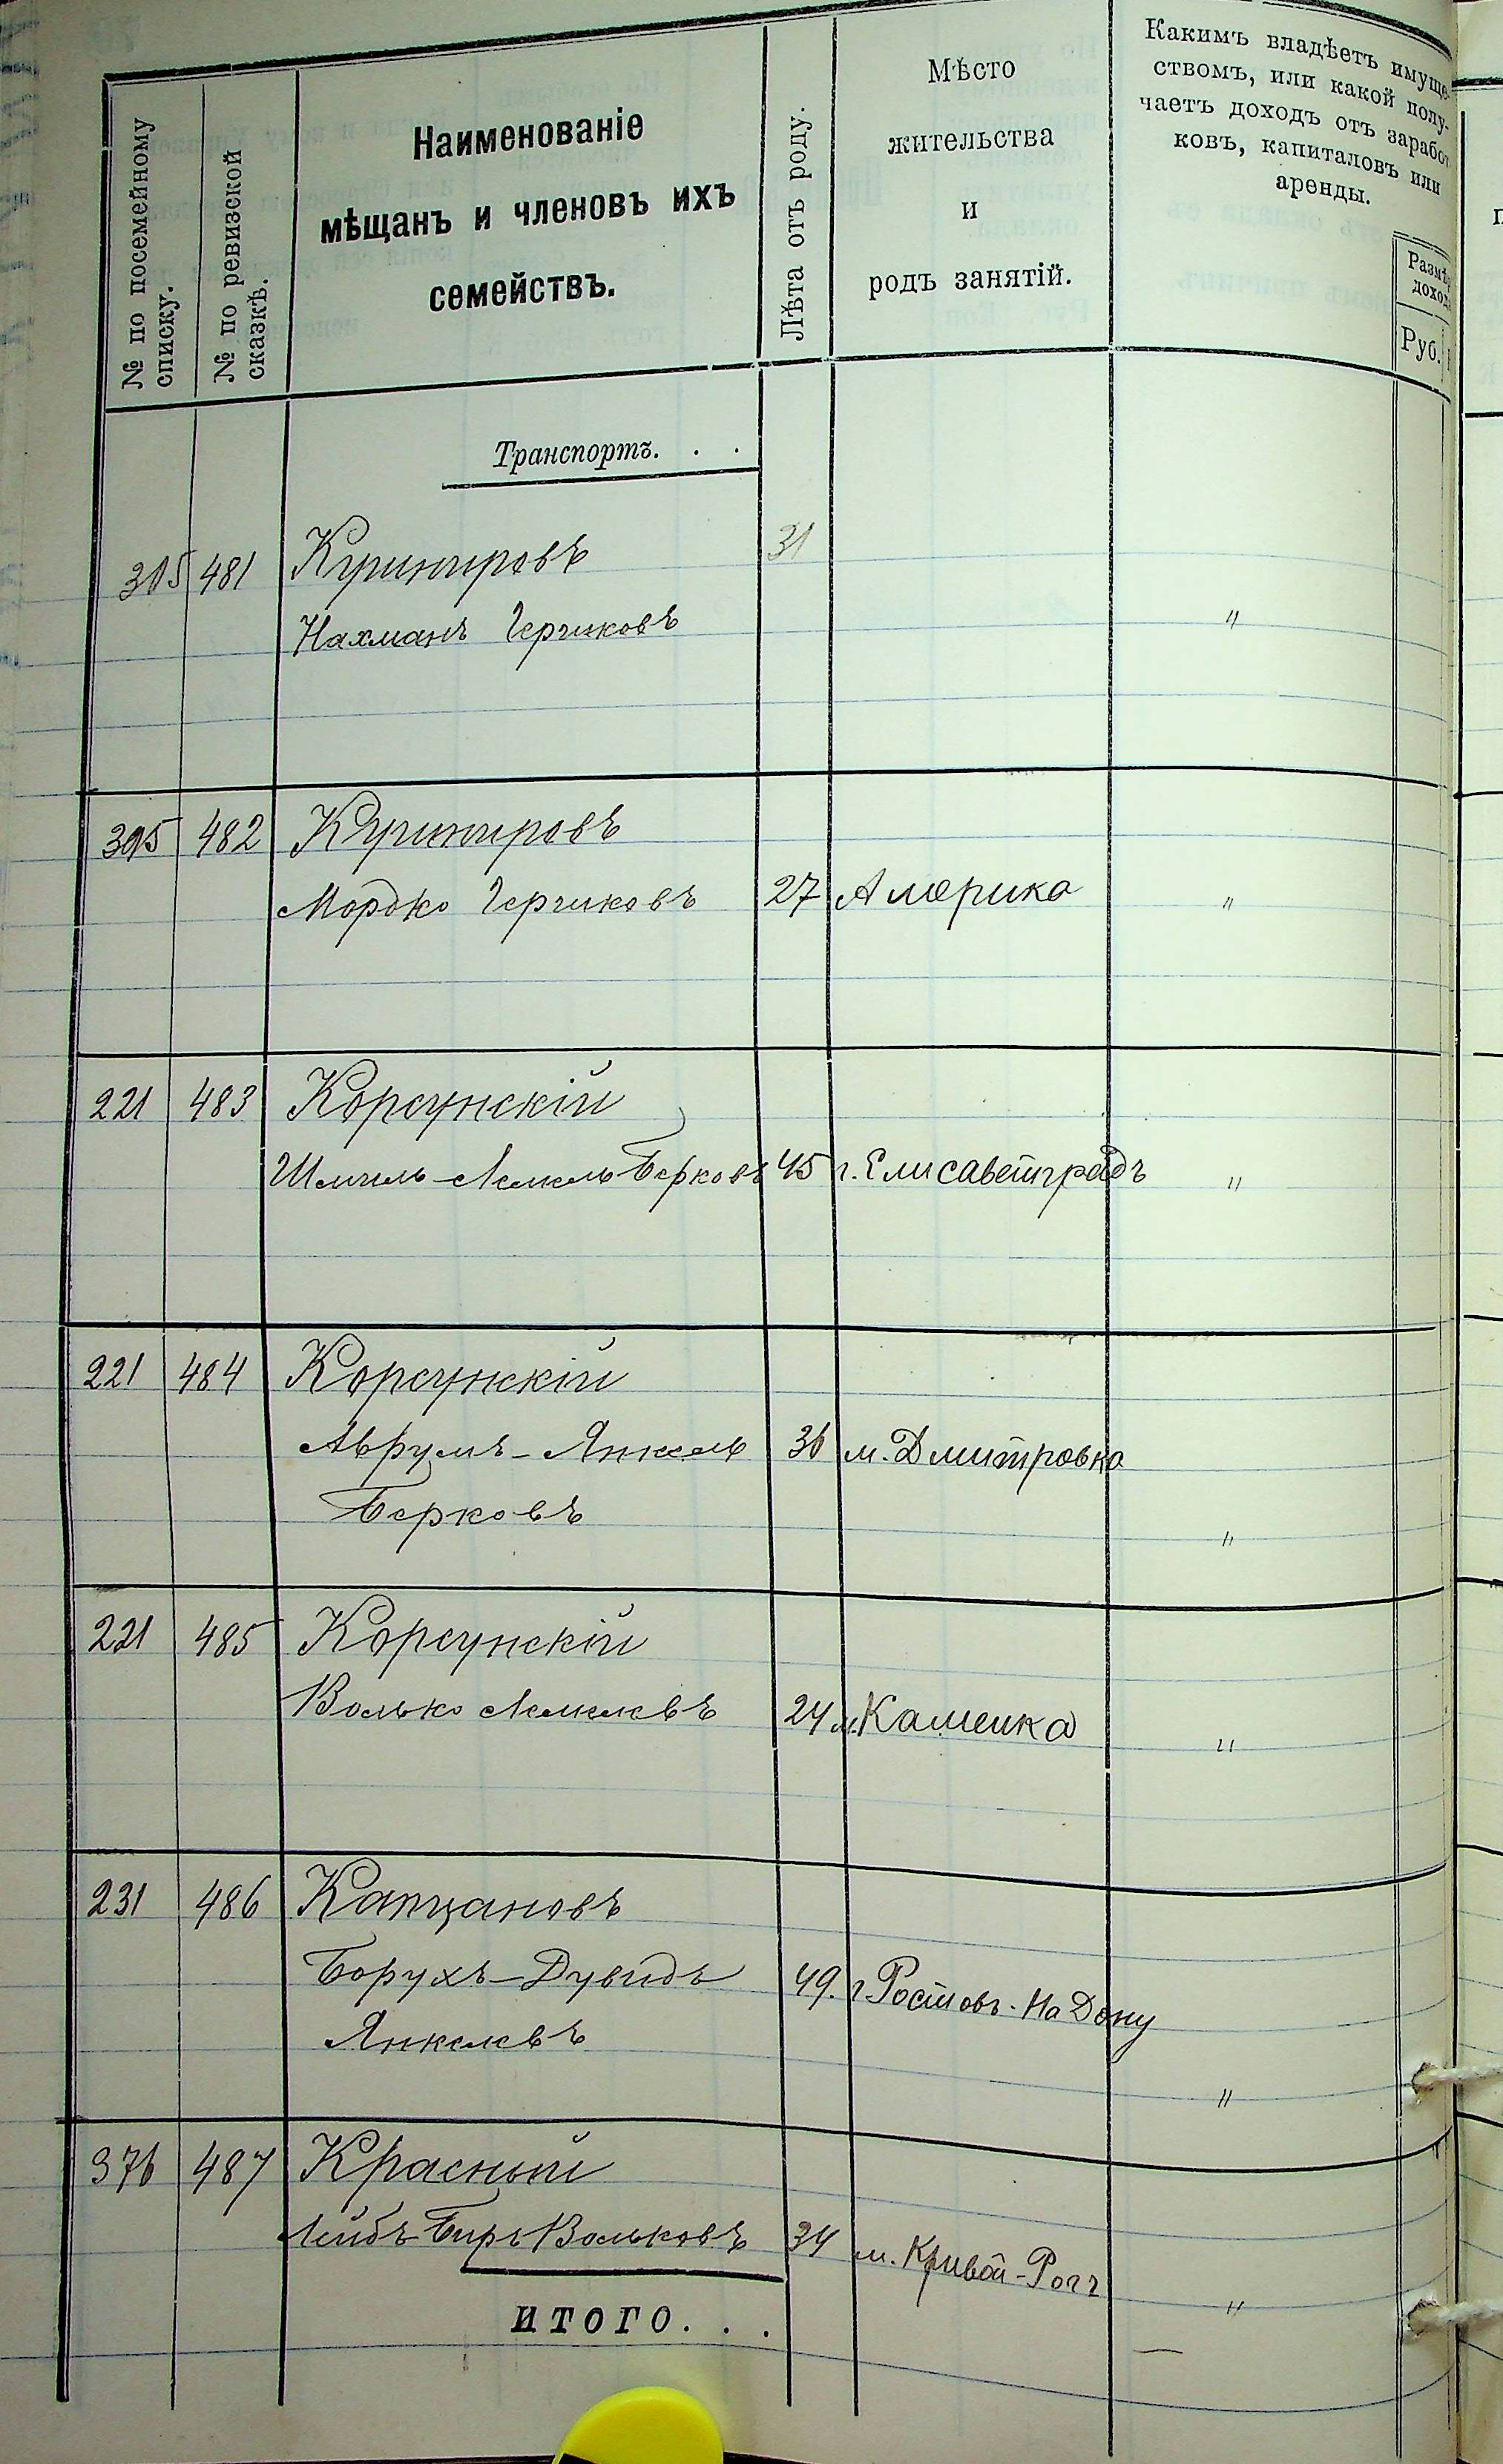 № по посемейному
списку.
№ по ревизской
сказкѣ.
Наименованіе
мѣщанъ и членовъ ихъ
семействъ.
Лѣта отъ роду.
Мѣсто
жительства
и
родъ занятій.
Какимъ владѣетъ имуще-
ствомъ, или какой полу-
чаетъ доходъ отъ заработ
ковъ, капиталовъ или
аренды.
Размѣ
доход
Руб.
Транспортъ. . .
481 31
Нахманъ Герчиковъ "
482
Мордко Герчиковъ 27 Америка "
221 483 Корсунскій
Шмиль-Лемель Берковъ 45 г. Елисаветградъ "
221 484 Корсунскій
Аврумъ-Янкель 36 м. Дмитровка
Берковъ "
221 485 Корсунскій
Волько Лемелевъ 24 м. Каменка "
231 486 Капцановъ
Борухъ-Дувидъ 49. г. Ростовъ-На Дону
Янкелевъ "
376 487 Красный
Лейбъ Беръ Вольковъ 34 м. Кривой-Рогъ "
ИТОГО. . .